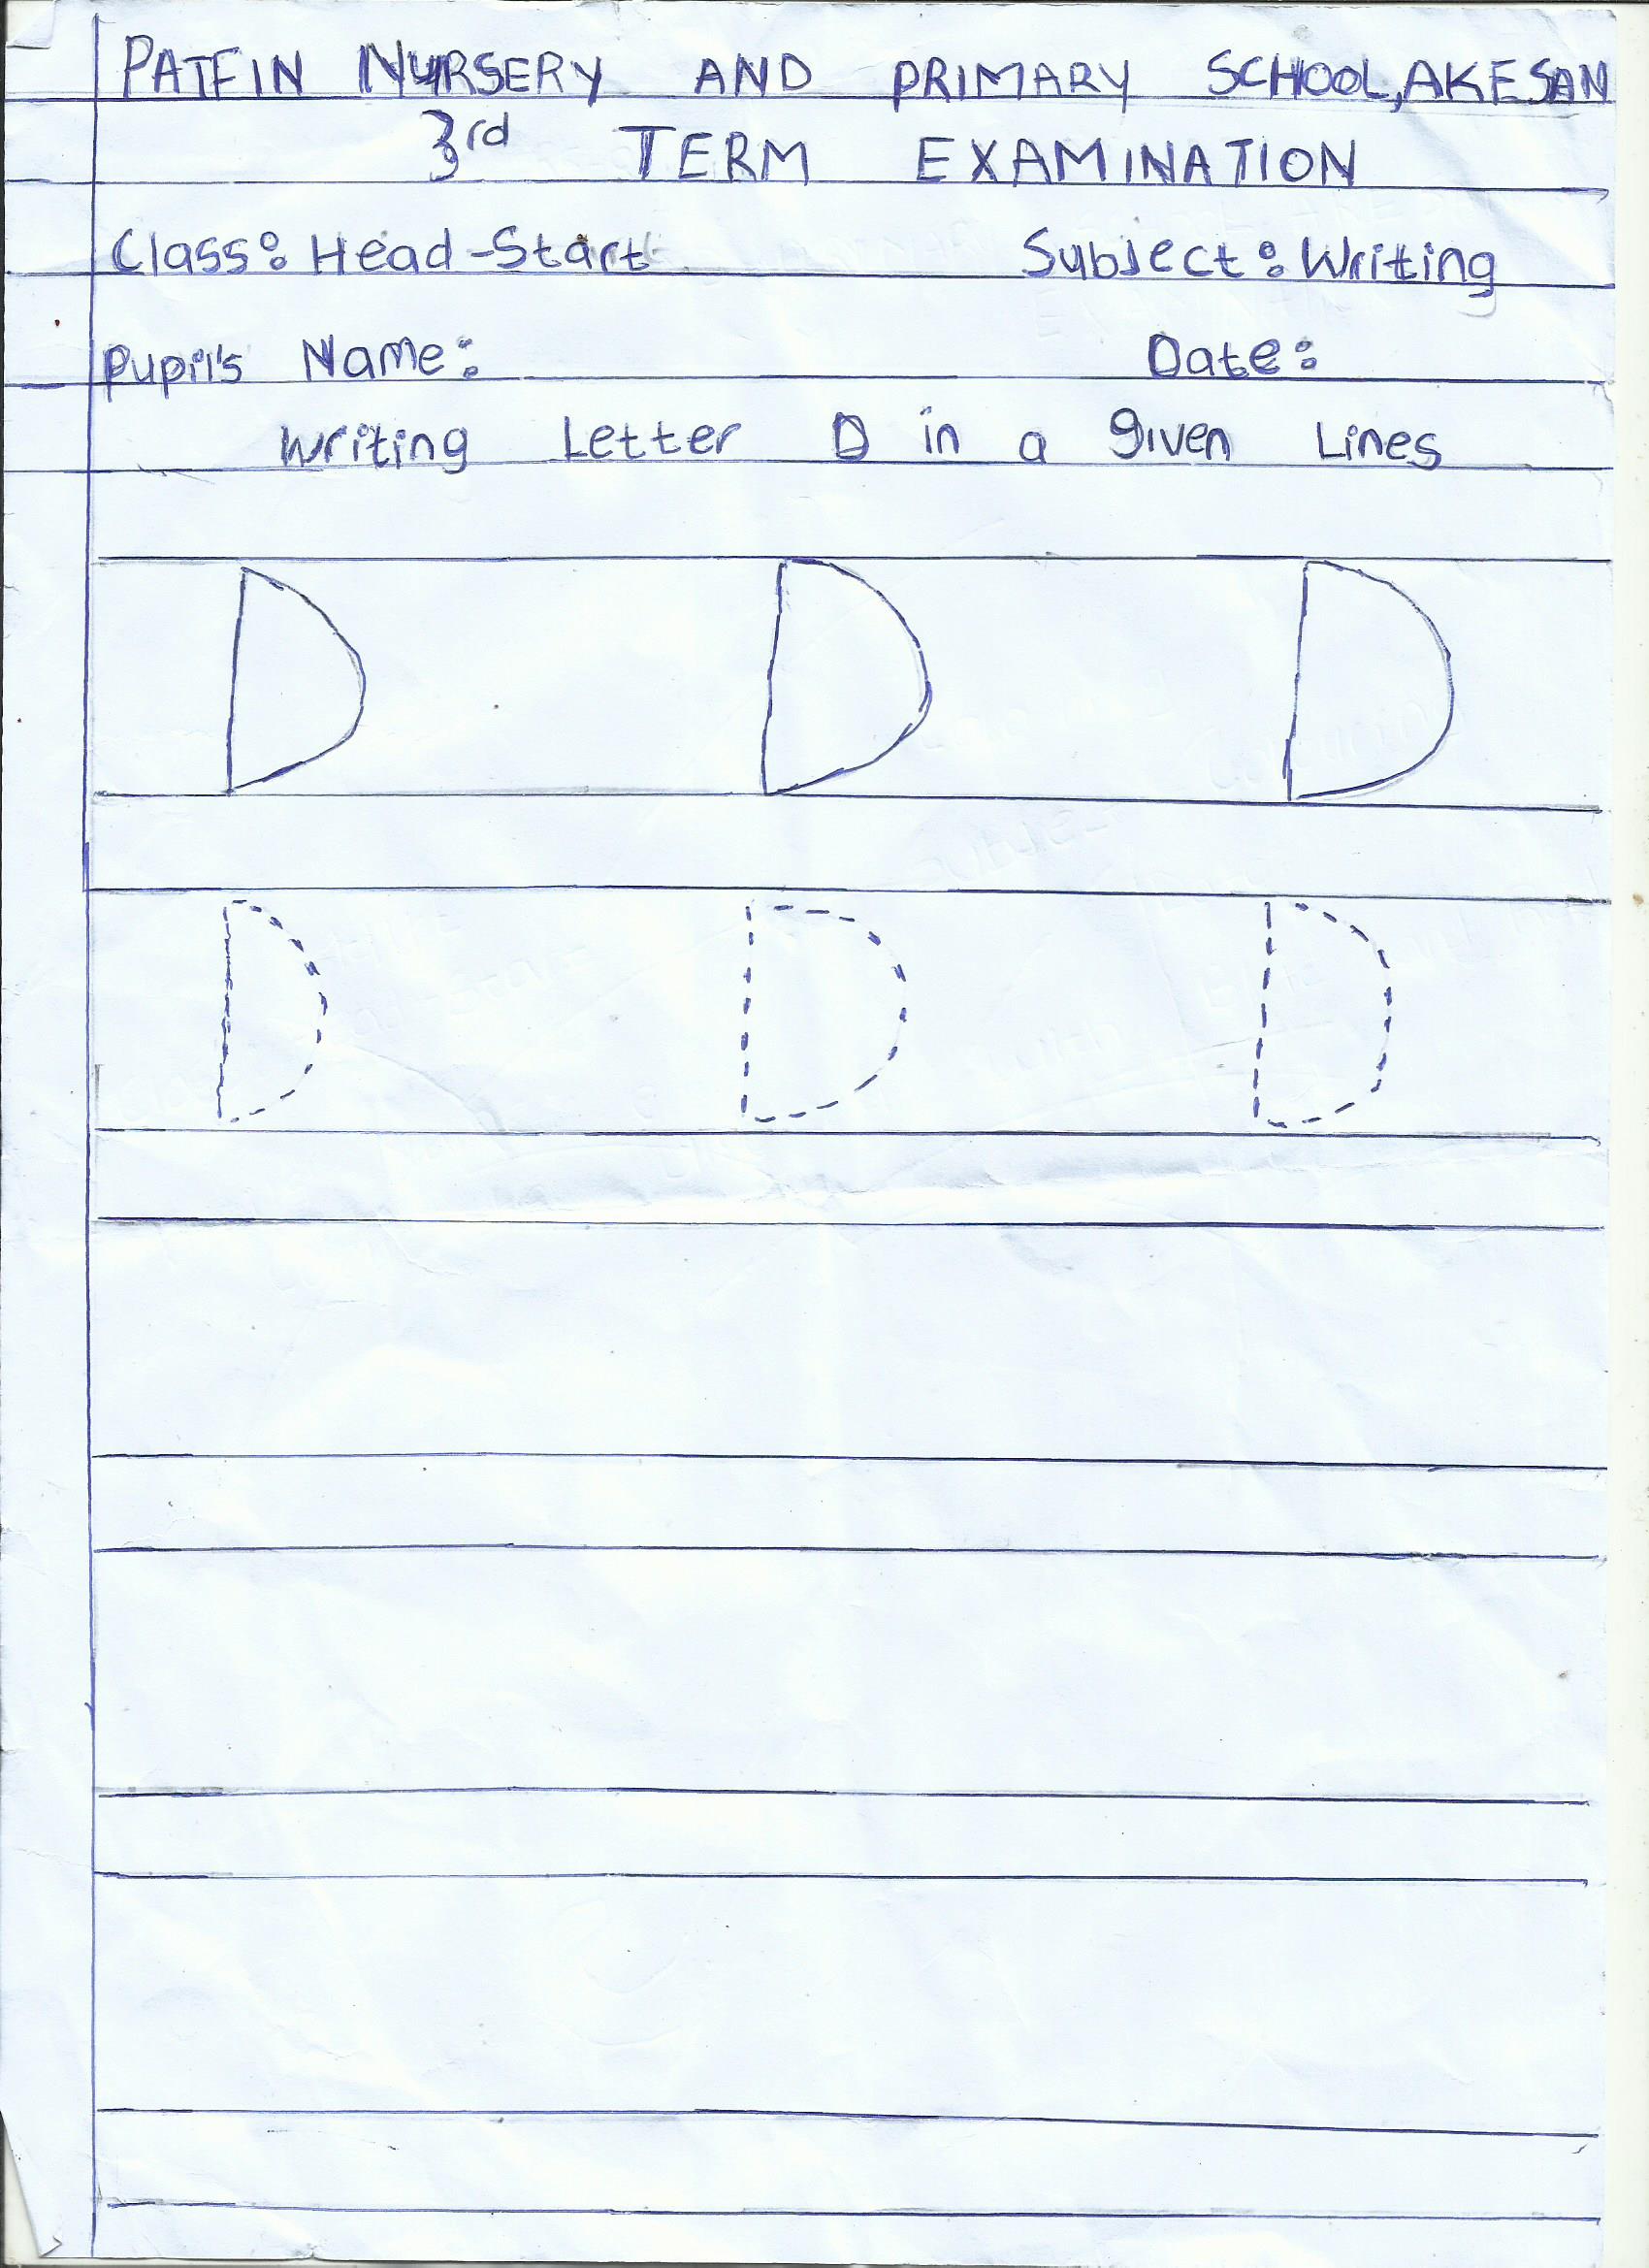 PATFIN NURSERY AND PRIMARY SCHOOL, AKESAN
3rd TERM EXAMINATION
Class: Head-Start Subject: Writing
Pupil's Name: Date:
Writing Letter D in a given Lines
D D D
D D D